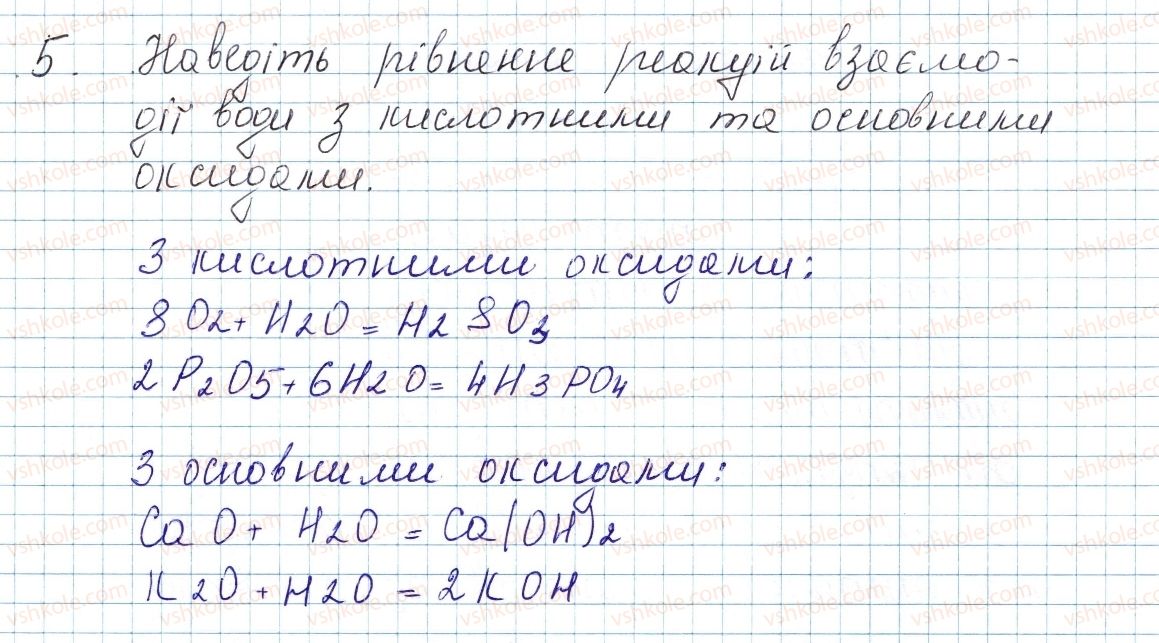 5. Наведіть рівнення реакцій взаємо-
дії води з кислотними та основними
оксидами.
З кислотними оксидами:
SO2 + H2O = H2SO3
2P2O5 + 6H2O = 4H3PO4
З основними оксидами:
CaO + H2O = Ca(OH)2
K2O + H2O = 2KOH
vshkole.com